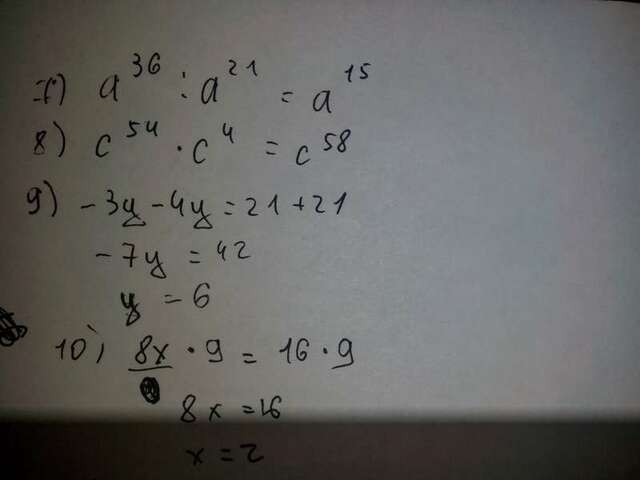 7) a³⁶ : a²¹ = a¹⁵
8) c⁵⁴ · c⁴ = c⁵⁸
9) -3y - 4y = 21 + 21
-7y = 42
y = 6
10) 8x · 9 = 16 · 9
8x = 16
x = 2